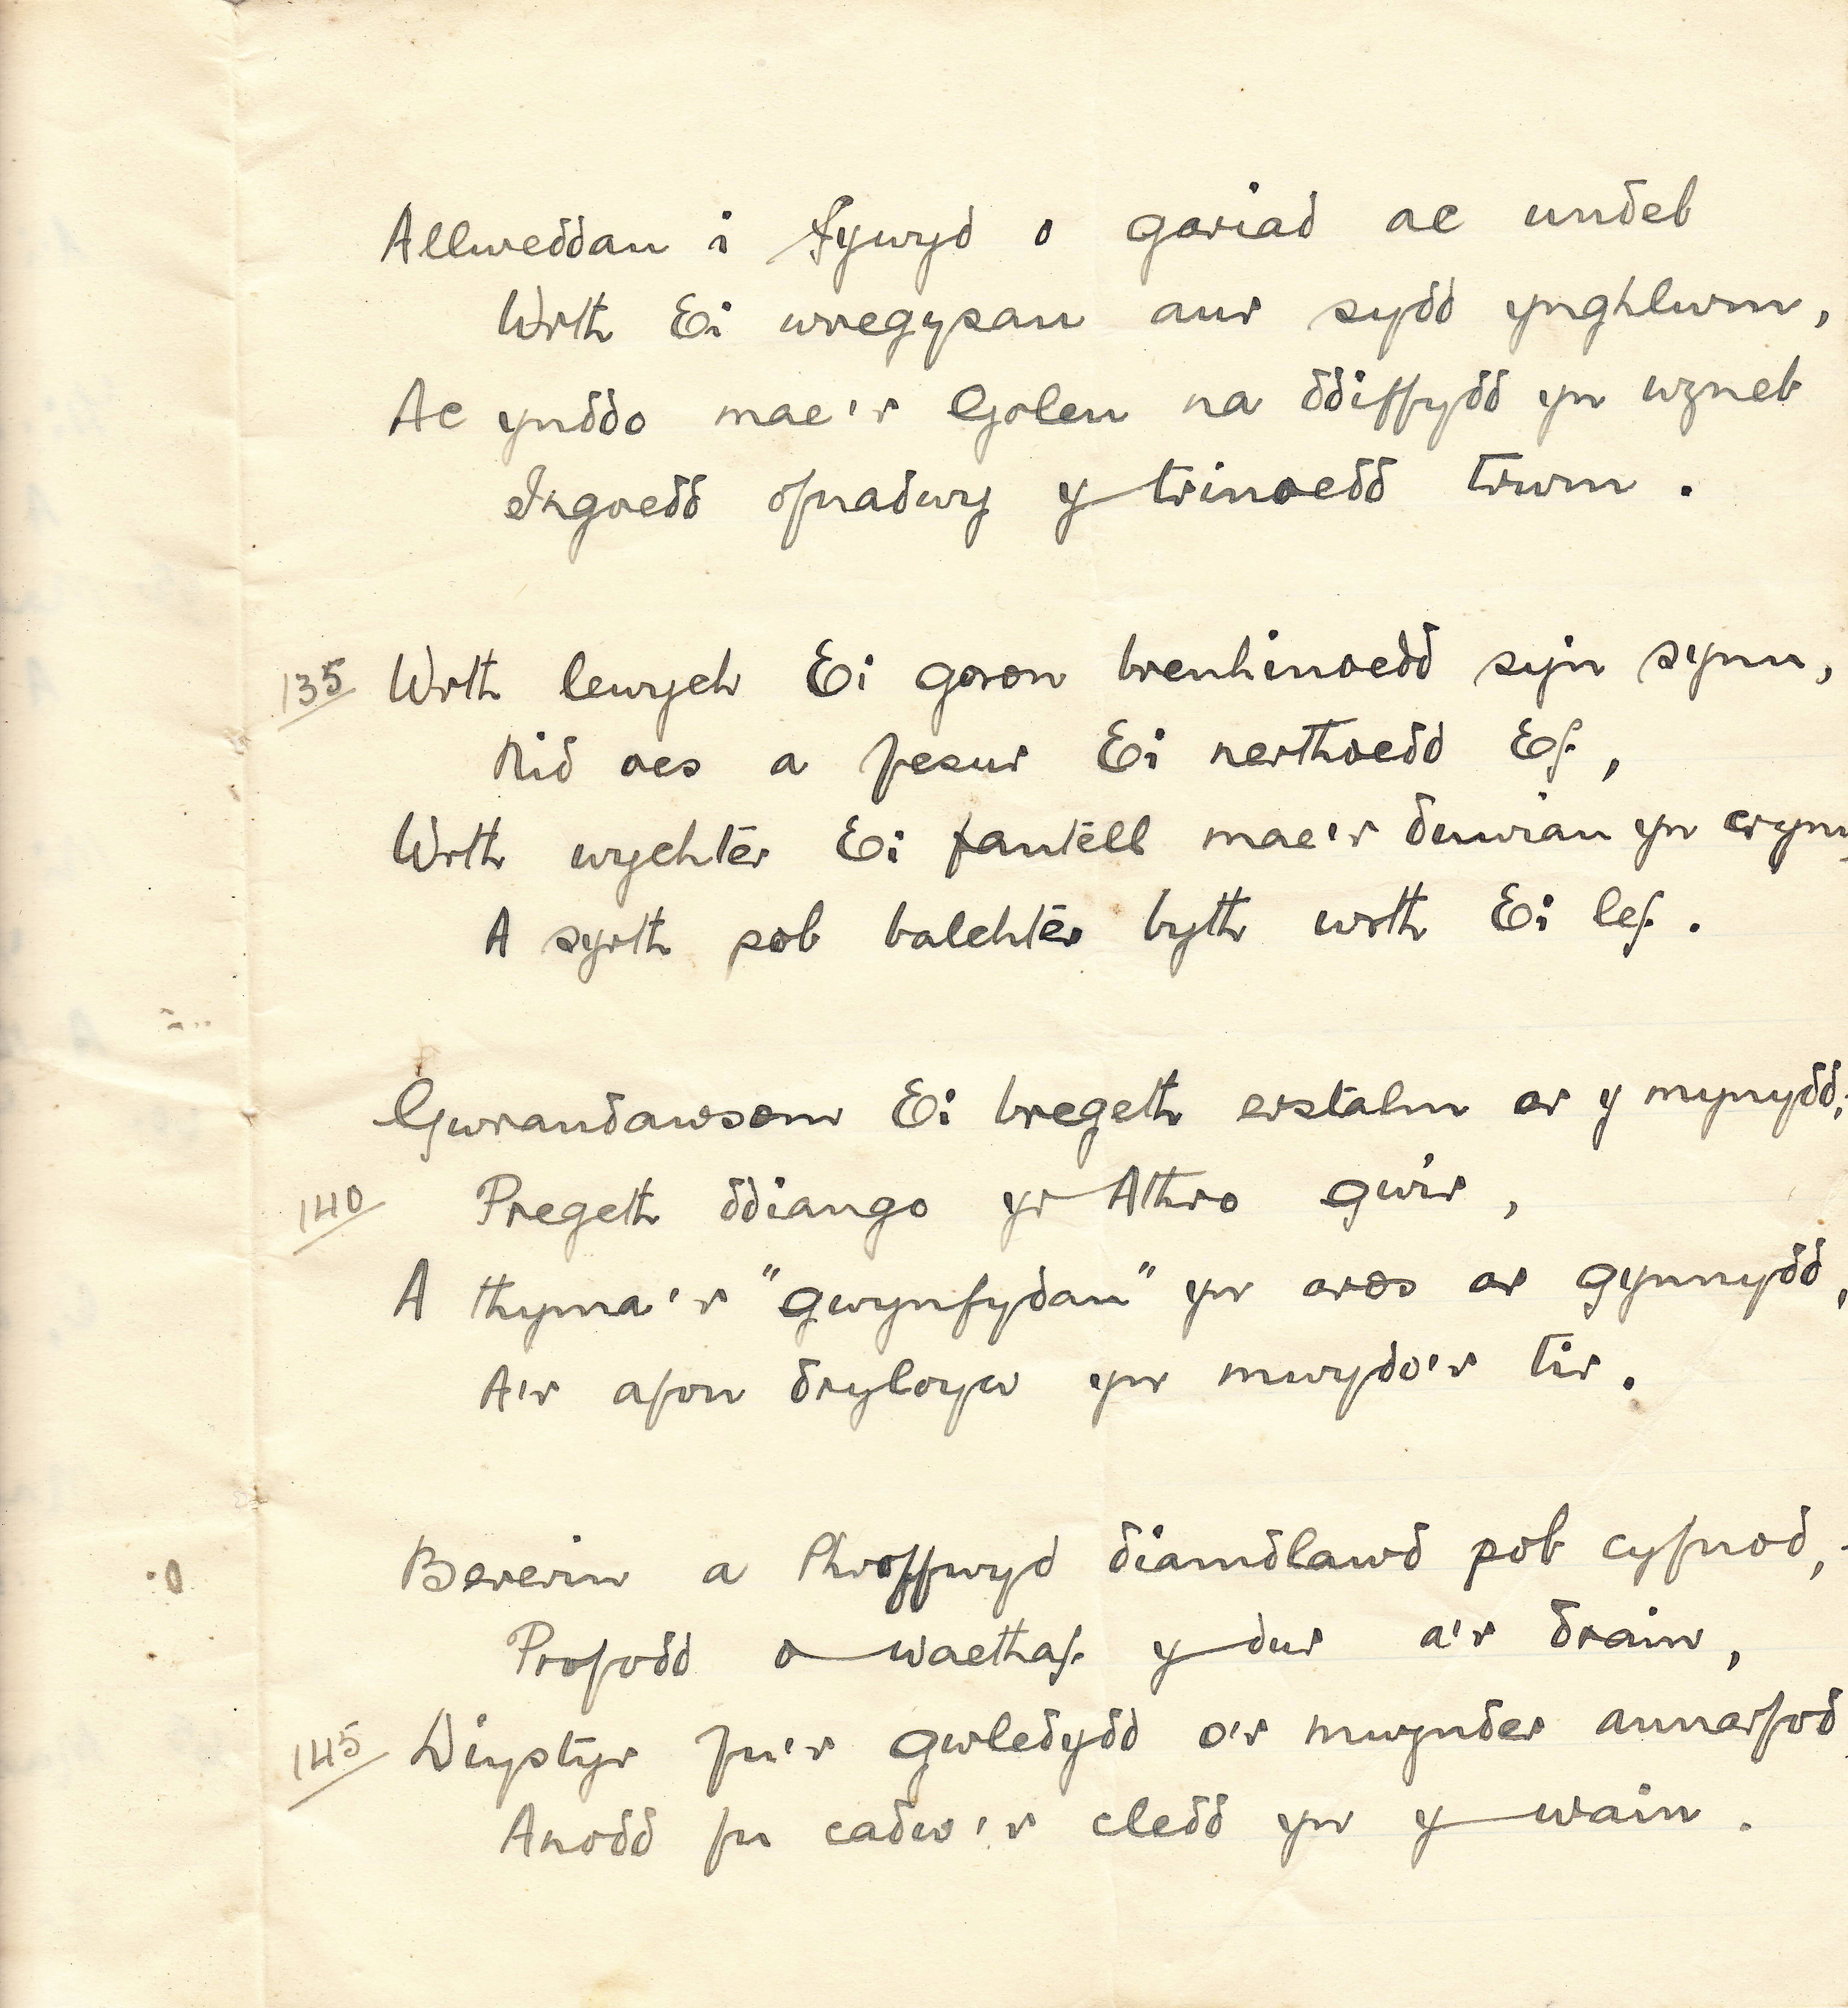 Allweddau i Fywyd o gariad ac undeb
Wrth Ei wregysau aur sydd ynghlwm,
Ac ynddo mae'r Goleu na ddiffydd yn wyneb
Ingoedd ofnadwy y trinoedd trwm.
135 Wrth lewych Ei goron brenhinoedd syn synu,
Nid oes a fesur Ei nerthoedd Ef,
Wrth wychter Ei fantell mae'r duwiau yn
A syrth pob balchter byth wrth Ei lef.
Gwrandawsom Ei bregeth erstalm ar y mynydd,
140 Pregeth ddiango yr Athro gwir,
A thyma'r "gwynfydau" yn aros ar gynnydd,
A'r afon dryloyw yn mwydo'r tir.
Bererin a Phroffwyd diamdlawd pob cyfnod,
Profodd o waethaf y dur a'r drain,
145 Diystyr fu'r gwledydd o'r mwynder annarfod
Anodd fu cadw'r cledd yn y wain.